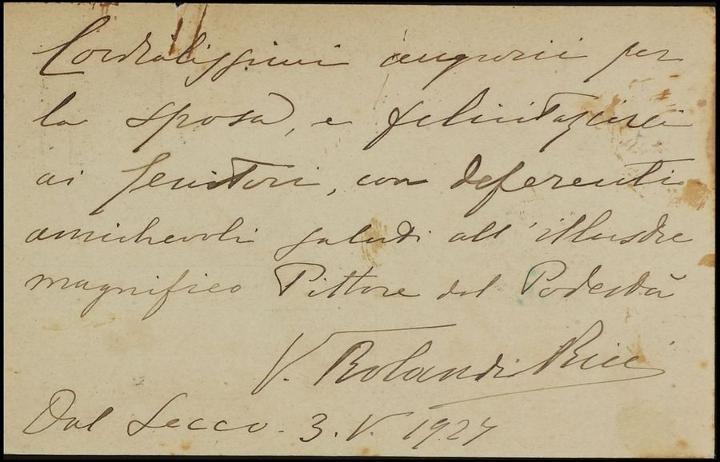 Cordialissimi augurii per
la sposa, e felicitazioni
ai genitori, con deferenti
amichevoli saluti all'illustre
magnifico Pittore del Podestà
V. Rolandi Ricci
Dal Secco. 3. V. 1927